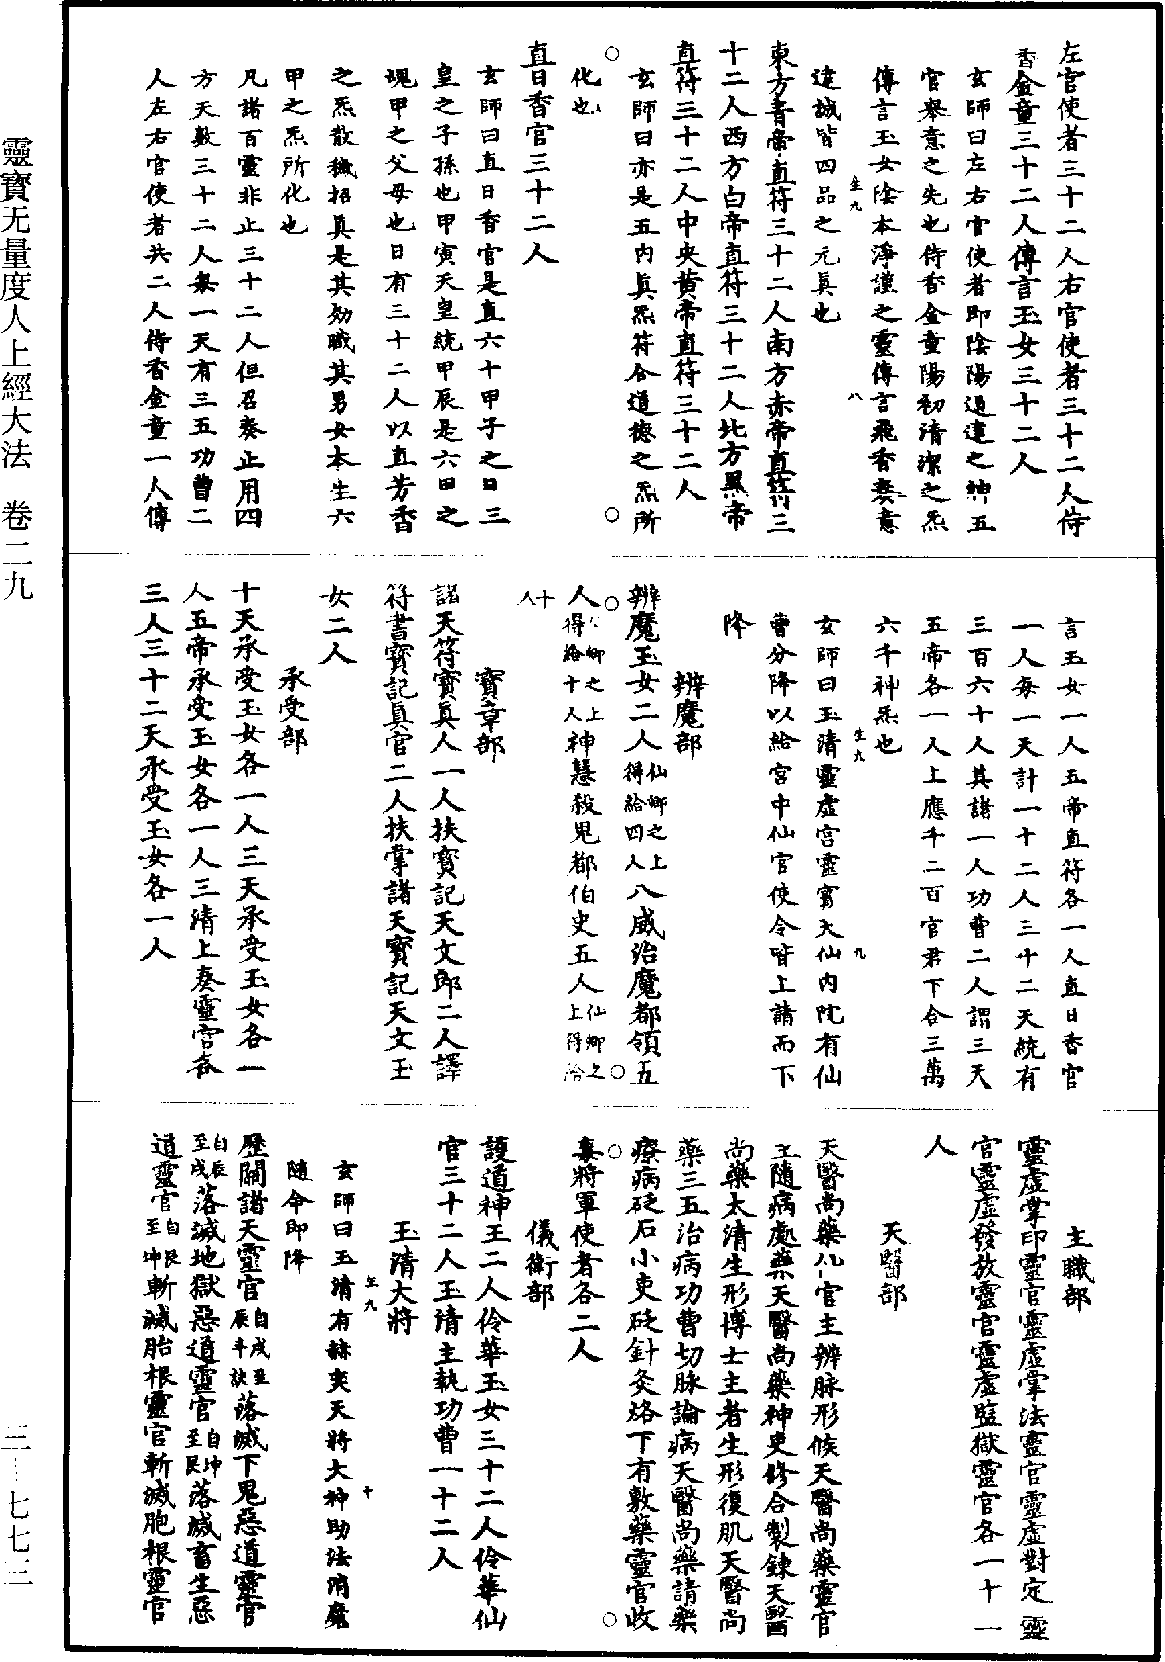 左官使者三十二人右官使者三十二人侍
香金童三十二人傳言玉女三十二人
玄師曰左右官使者即陰陽通達之神五
官舉意之先也侍香金童陽初清潔之炁
傳言玉女陰本淨謹之靈傳言飛香奏意
達誠皆四品之元真也
生九
八
東方青帝直符三十二人南方赤帝直符三
十二人西方白帝直符三十二人北方黑帝
直符三十二人中央黃帝直符三十二人
玄師曰亦是五內真炁符合道德之炁所
化也
直日香官三十二人
玄師曰直日香官是直六十甲子之日三
皇之子孫也甲寅天皇統甲辰是六田之
塊甲之父母也日有三十二人以直芳香
之炁散穢招真是其効職其男女本生六
甲之炁所化也
凡諸百靈非止三十二人但召奏止用四
方天數三十二人每一天有三五功曹二
人左右官使者共二人侍香金童一人傳
言玉女一人五帝直符各一人直日香官
一人每一天計一十二人三十二天統有
三百六十人其諸一人功曹二人謂三天
五帝各一人上應千二百官君下合三萬
六千神炁也
生九
九
玄師曰玉清靈虛宮靈寶大仙內院有仙
曹分降以給宮中仙官使令皆上請而下
降
辨魔部
辨魔玉女二人仙卿之上得給四人八威治魔都領五
人仙卿之上得給十人神慧殺鬼都伯史五人仙卿之上得給
十人
寶章部
諸天符寶真人一人扶寶記天文郎二人譯
符書寶記真官二人扶掌諸天寶記天文玉
女二人
承受部
十天承受玉女各一人三天承受玉女各一
人五帝承受玉女各一人三清上奏靈官各
三人三十二天承受玉女各一人
主職部
靈虛掌印靈官靈虛掌法靈官靈虛對定靈
官靈虛發放靈官靈虛監獄靈官各一十一
人
天醫部
天醫尚藥八官主辨脉形候天醫尚藥靈官
主隨病處藥天醫尚藥神吏修合製鍊天醫
尚藥太清生形博士主者生形復肌天醫尚
藥三五治病功曹切脉論病天醫尚藥請藥
療病砭石小吏砭針灸烙下有敷藥靈官收
毒將軍使者各二人
儀衛部
護道神王二人伶華玉女三十二人伶華仙
官三十二人玉清主執功曹一十二人
玉清大將
生九
十
玄師曰玉清有赫奕天將大神助法消魔
隨命即降
歷關諸天靈官自戌至辰斗訣落滅下鬼惡道靈官
自辰至戌落滅地獄惡道靈官自坤至艮落滅畜生惡
道靈官自艮至坤斬滅胎根靈官斬滅胞根靈官
靈寶无量度人上經大法 卷二九
三—七七三